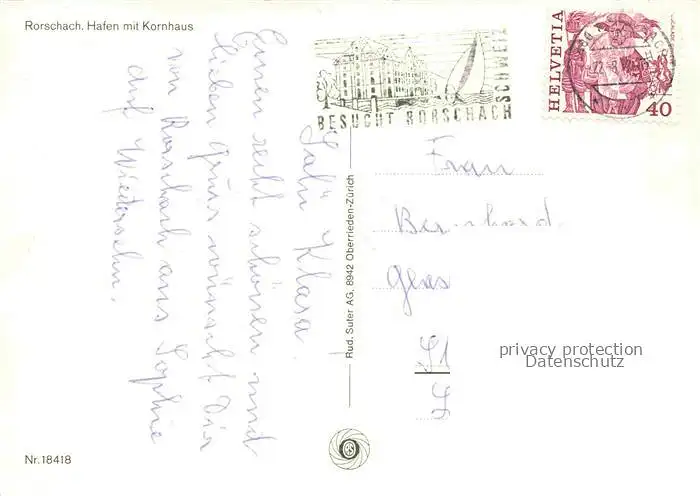 Rorschach. Hafen mit Kornhaus
BESUCHT RORSCHACH
SCHWEIZ
HELVETIA
40
Salü Klara!
Einen recht schönen und
lieben Gruss wünscht Dir
von Rorschach aus Sophie
auf Wiedersehn.
Rud. Suter AG. 8942 Oberrieden-Zürich
Frau
privacy protection
Datenschutz
Nr. 18418